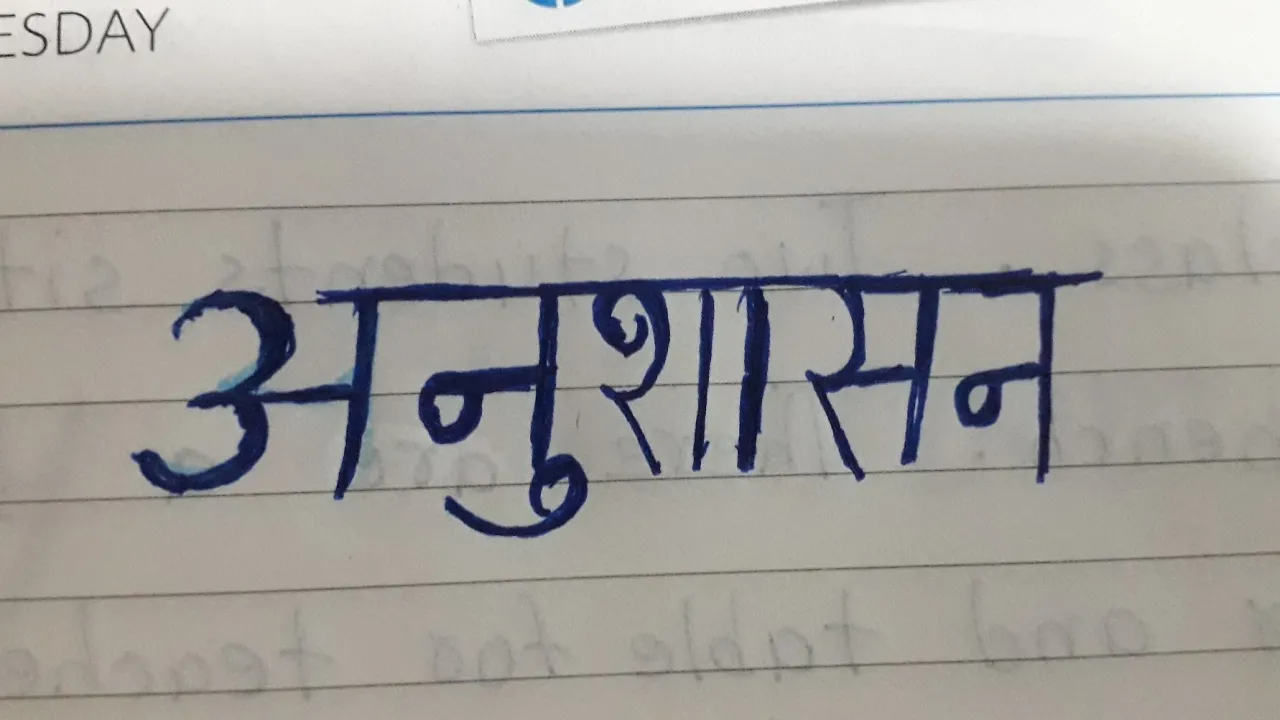 ESDAY
अनुशासन